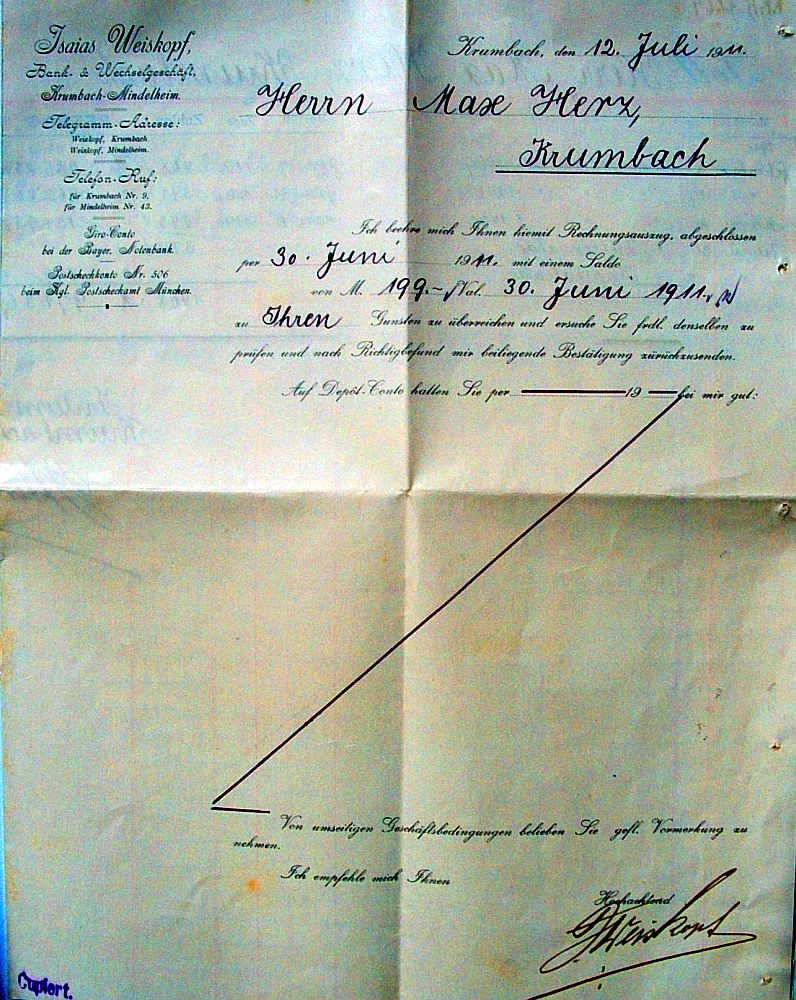 Isaias Weiskopf,
Bank- & Wechselgeschäft,
Krumbach-Mindelheim.
Telegramm-Adresse:
Weiskopf, Krumbach
Weiskopf, Mindelheim.
Telefon-Ruf:
für Krumbach Nr. 9,
für Mindelheim Nr. 43.
Giro-Conto
bei der Bayer. Notenbank
Postscheckkonto Nr. 506
beim Kgl. Postscheckamt München.
Krumbach, den 12. Juli 1911.
Herrn Max Herz,
Krumbach
Ich beehre mich Ihnen hiemit Rechnungsauszug, abgeschlossen
per 30. Juni 1911. mit einem Saldo
von M. 199.- Val. 30. Juni 1911.
zu Ihren Gunsten zu überreichen und ersuche Sie frdl. denselben zu
prüfen und nach Richtigbefund mir beiliegende Bestätigung zurückzusenden.
Auf Depôt-Conto hatten Sie per 19 bei mir gut:
Von umseitigen Geschäftsbedingungen belieben Sie gefl. Vormerkung zu
nehmen.
Ich empfehle mich Ihnen
Hochachtend
JWeiskopf
Copiert.